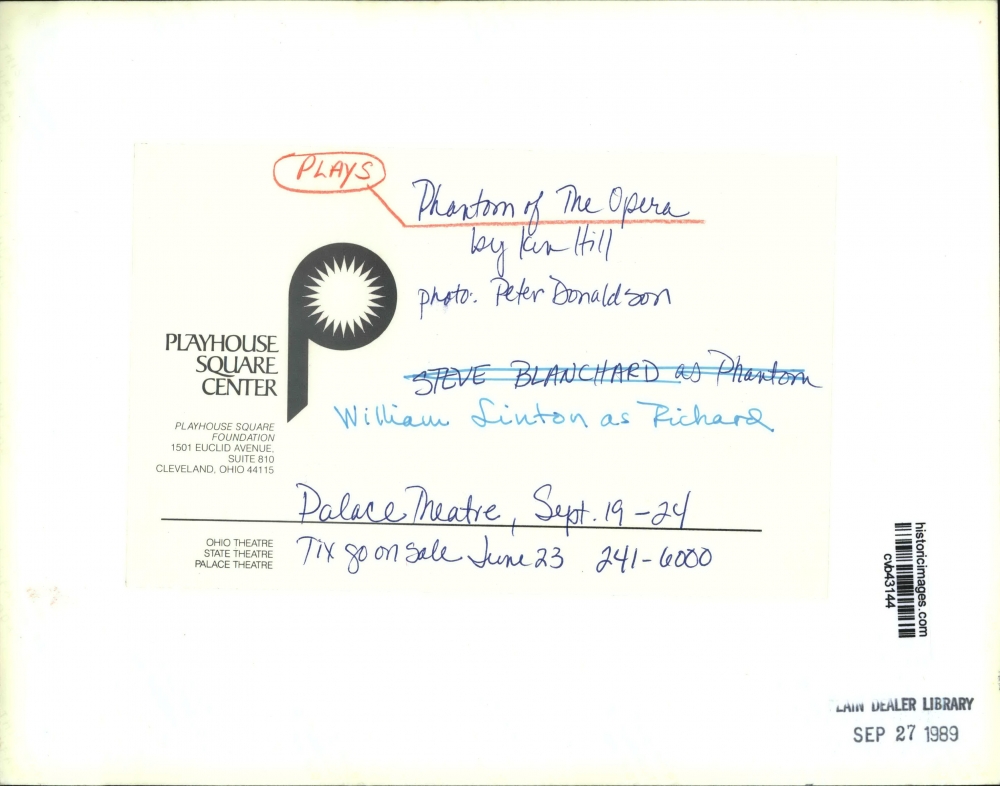 PLAYS
Phantom of The Opera
by Ken Hill
photo: Peter Donaldson
PLAYHOUSE
SQUARE
CENTER
STEVE BLANCHARD as Phantom
William Linton as Richard
PLAYHOUSE SQUARE
FOUNDATION
1501 EUCLID AVENUE,
SUITE 810
CLEVELAND, OHIO 44115
Palace Theatre, Sept. 19-24
OHIO THEATRE
STATE THEATRE
PALACE THEATRE
Tix go on sale June 23 241-6000
historicimages.com
cvb43144
LAIN DEALER LIBRARY
SEP 27 1989